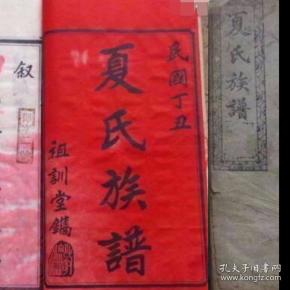 民國丁丑
夏氏族譜
祖訓堂鐫
叙
夏氏族譜
孔夫子旧书网